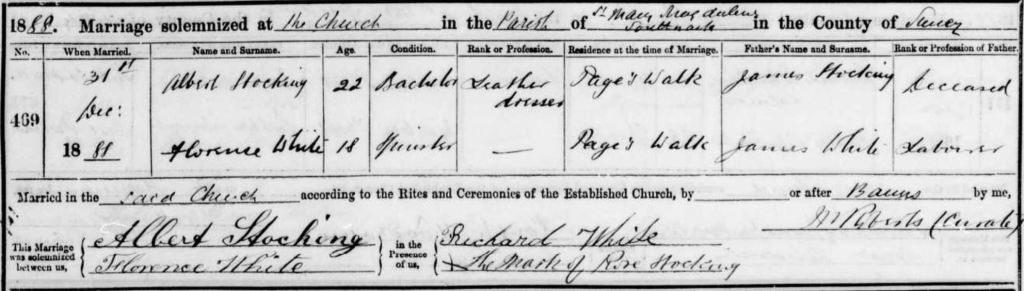 1888. Marriage solemnized at the Church in the Parish of St Mary Magdalene Southwark in the County of Surrey
No. When Married. Name and Surname. Age. Condition. Rank or Profession. Residence at the time of Marriage. Father's Name and Surname. Rank or Profession of Father.
469 31st Dec: 1888 Albert Stocking 22 Bachelor Leather dresser Page's Walk James Stocking Deceased
Florence White 18 Spinster — Page's Walk James White Labourer
Married in the said Church according to the Rites and Ceremonies of the Established Church, by or after Banns by me,
(Curate)
This Marriage was solemnized between us, Albert Stocking Florence White in the Presence of us, Richard White The Mark of Rose Stocking